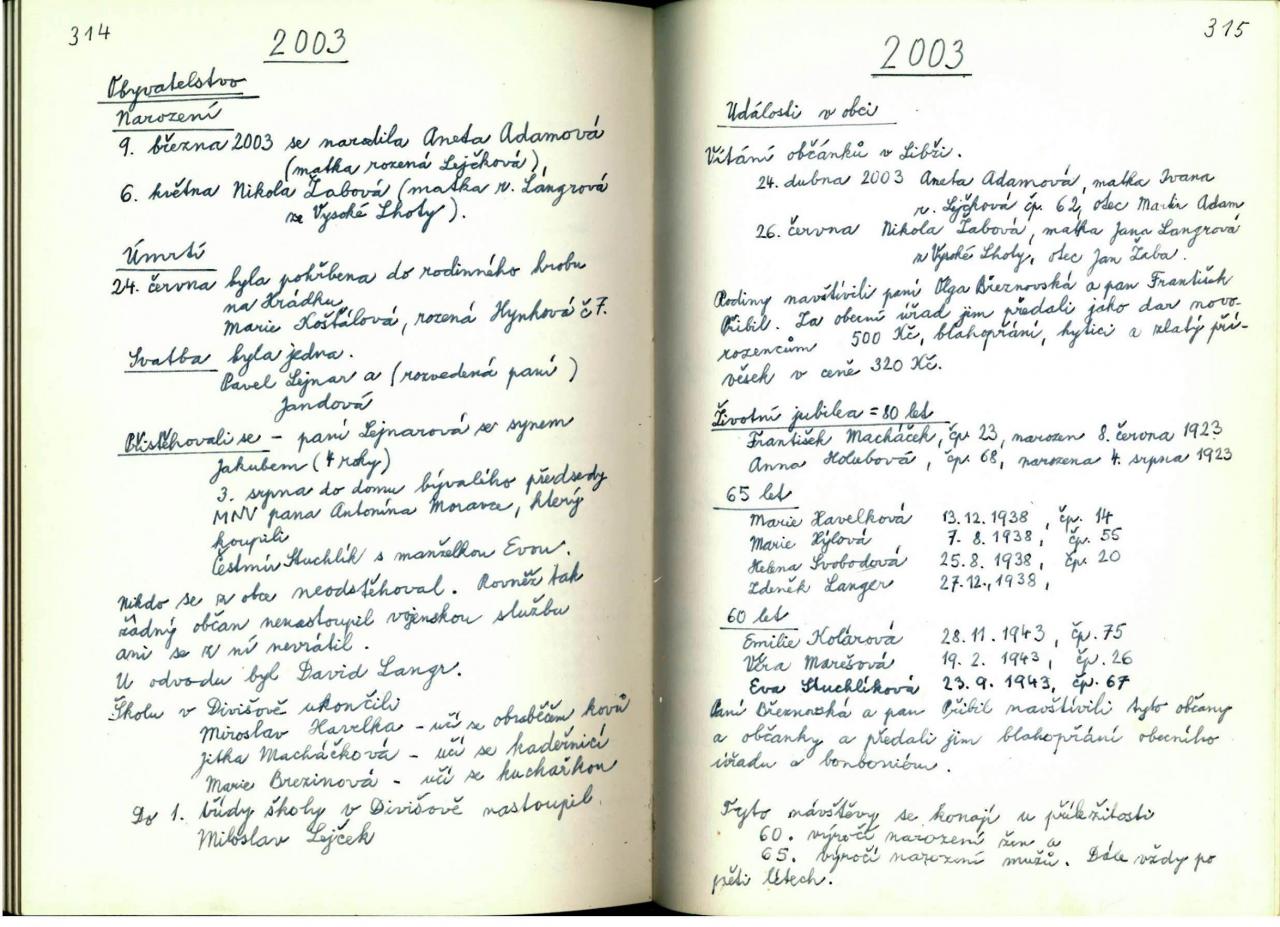 314
2003
Obyvatelstvo
Narození
9. března 2003 se narodila Aneta Adamová
(matka rozená Lejčková),
6. května Nikola Žabová (matka r. Langrová
ze Vysoké Lhoty).
Úmrtí
24. června byla pohřbena do rodinného hrobu
na Hrádku
Marie Košťálová, rozená Hynková č 7.
Svatba byla jedna.
Pavel Lejnar a (rozvedená paní )
Jandová
Přistěhovali se - paní Lejnarová se synem
Jakubem (4 roky)
3. srpna do domu bývalého předsedy
MNV pana Antonína Moravce, který
koupili
Čestmír Stuchlík s manželkou Evou.
Nikdo se z obce neodstěhoval. Rovněž tak
žádný občan nenastoupil vojenskou službu
ani se z ní nevrátil.
U odvodu byl David Langr.
Školu v Divišově ukončili
Miroslav Havelka - učí se obráběčem kovů
Jitka Macháčková - učí se kadeřnicí
Marie Brezinová - učí se kuchařkou
Do 1. třídy školy v Divišově nastoupil
Miloslav Lejček
315
2003
Události v obci
Vítání občánků v Libži.
24. dubna 2003 Aneta Adamová, matka Ivana
r. Lejčková čp. 62, otec Martin Adam
26. června Nikola Žabová, matka Jana Langrová
z Vysoké Lhoty, otec Jan Žaba.
Rodiny navštívili paní Olga Březnovská a pan František
Přibil. Za obecní úřad jim předali jako dar novo-
rozencům 500 Kč, blahopřání, kytici a zlatý pří-
věsek v ceně 320 Kč.
Životní jubilea = 80 let
František Macháček, čp. 23, narozen 8. června 1923
Anna Holubová, čp. 68, narozena 4. srpna 1923
65 let
Marie Havelková 13.12.1938, čp. 14
Marie Hýlová 7.8.1938, čp. 55
Helena Svobodová 25.8.1938, čp. 20
Zdeněk Langer 27.12.,1938,
60 let
Emilie Kolárová 28.11.1943, čp. 75
Věra Marešová 19.2.1943, čp. 26
Eva Stuchlíková 23.9.1943, čp. 67
Paní Březnovská a pan Přibil navštívili tyto občany
a občanky a předali jim blahopřání obecního
úřadu a bonboniéru.
Tyto návštěvy se konají u příležitosti
60. výročí narození žen a
65. výročí narození mužů. Dále vždy po
pěti létech.